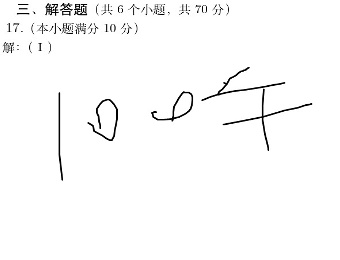 三、解答题（共 6 个小题，共 70 分）
17.（本小题满分 10 分）
解：（Ⅰ）
100年